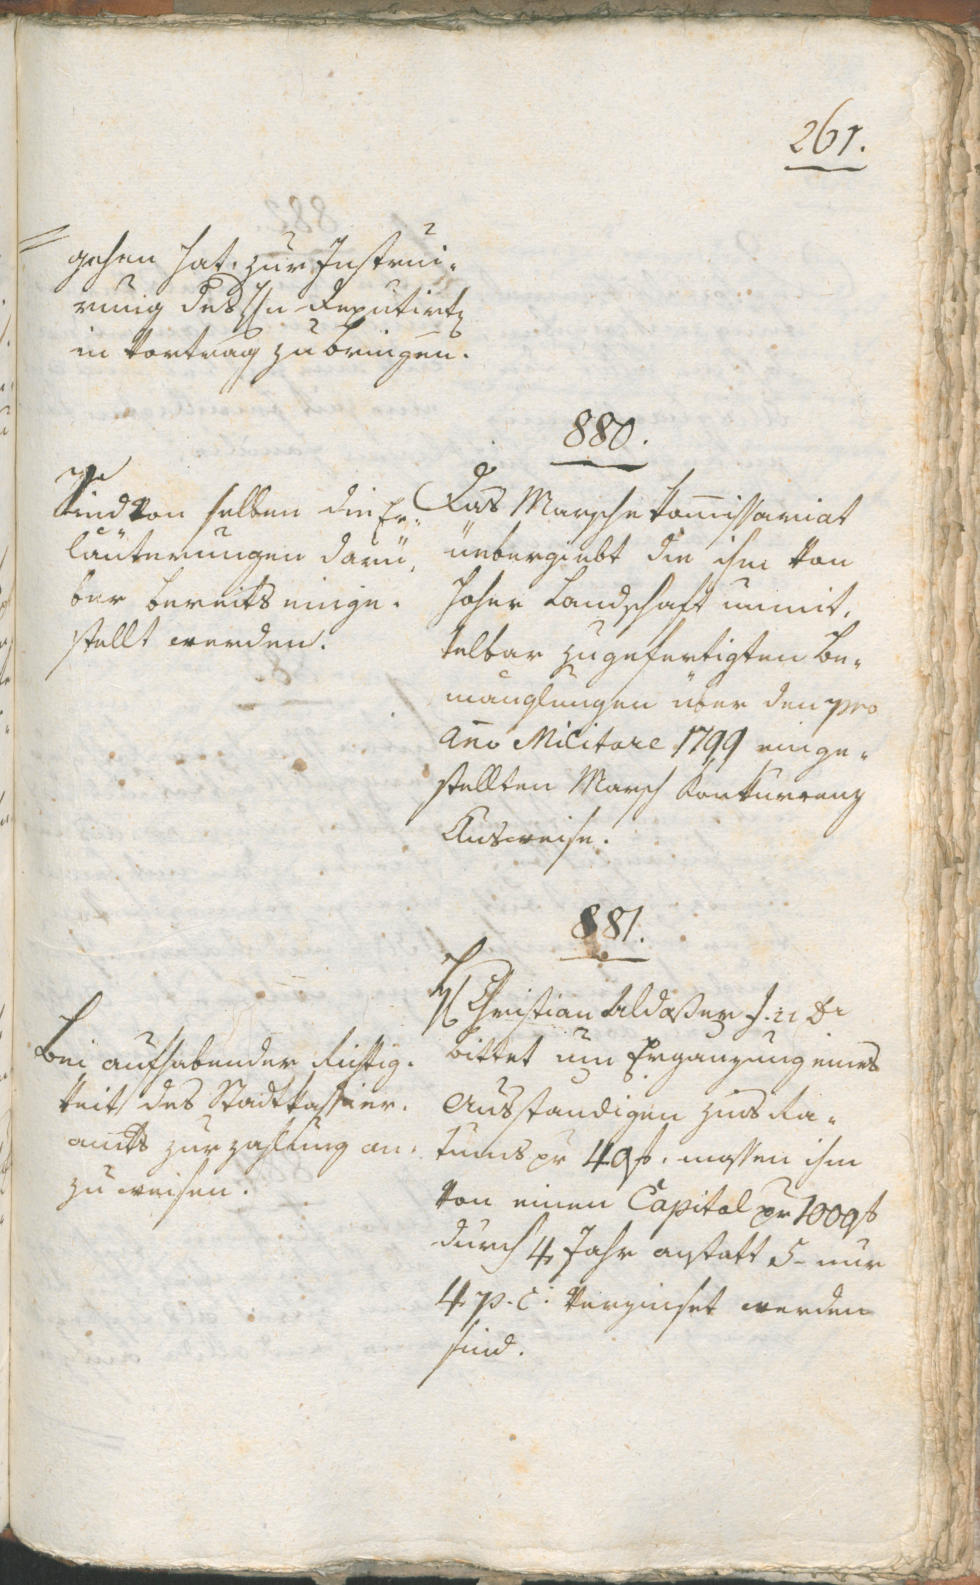 261.
gehen hat. zur Instrui-
rung des H Deputirten
in Vortrag zu bringen.
880.
Sind von selben die Er-
läuterungen darü-
ber bereits einge-
stellt werden.
Das Marsche Kom̅issariat
uebergiebt die ihm von
hoher Landschaft unmit-
telbar zugefertigten Be-
manglungen über den pro
Ano̅ Militare 1799 einge-
stellten Marsch Konkurrenz
Ausweise.
881.
Bei aufhabender Richtig-
keit des Stadtkassier-
amts zur Zahlung an-
zuweisen.
H Christian J. u Dr
bittet um Ergänzung eines
Ausständigen Zins Ra-
tums pr 40f. massen ihm
von einen Capital pr 1000f
durch 4 Jahr anstatt 5 nur
4 p. C: verzinset werden
sind.